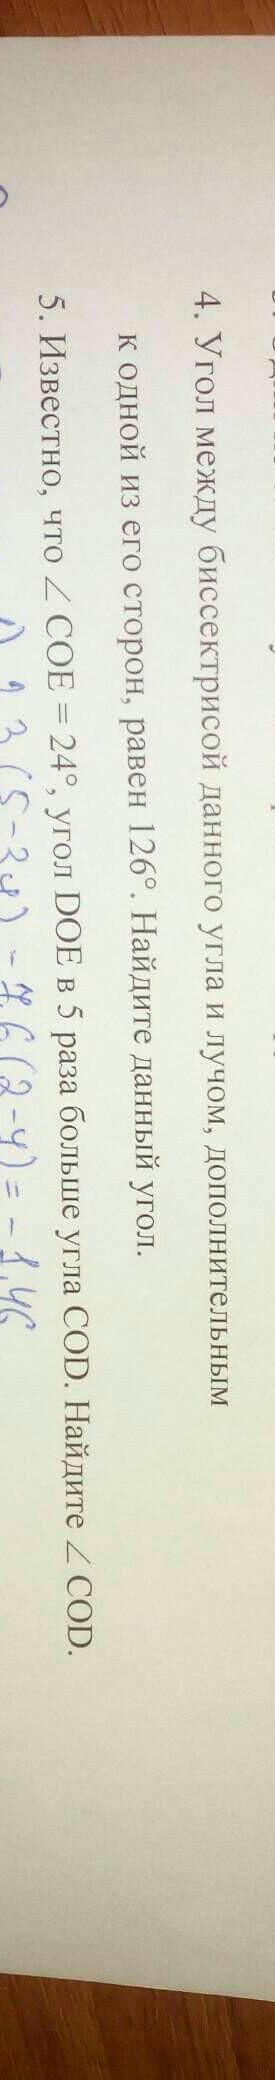 4. Угол между биссектрисой данного угла и лучом, дополнительным
к одной из его сторон, равен 126°. Найдите данный угол.
5. Известно, что ∠ COE = 24°, угол DOE в 5 раза больше угла COD. Найдите ∠ COD.
3(5-3y) - 7,6(2-y) = -1,46